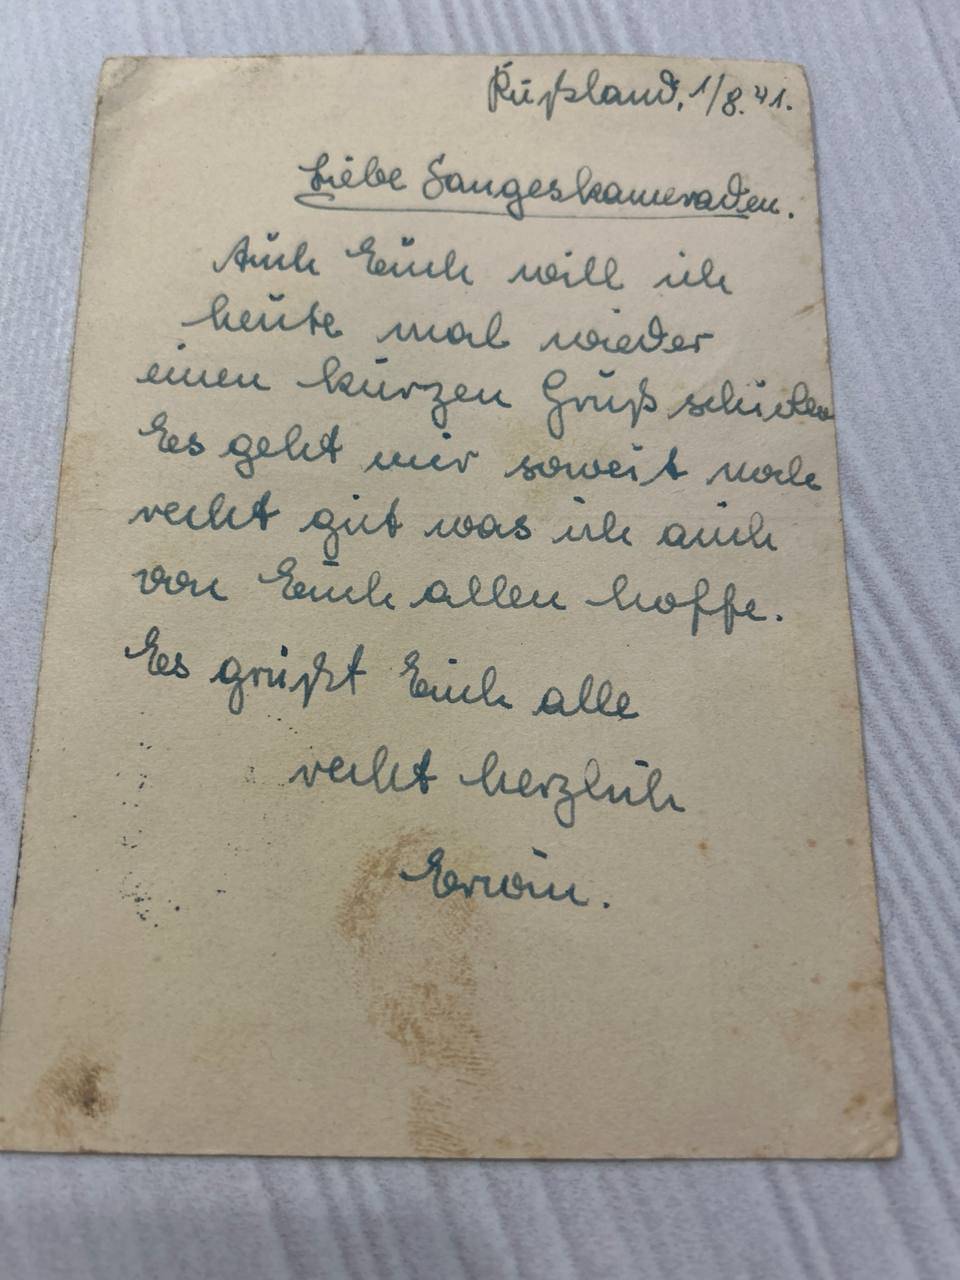 Rußland, 1/8.41.
Liebe Sangeskameraden.
Auch Euch will ich
heute mal wieder
einen kurzen Gruß schicken
Es geht mir soweit noch
recht gut was ich auch
von Euch allen hoffe.
Es grüßt Euch alle
recht herzlich
Erwin.